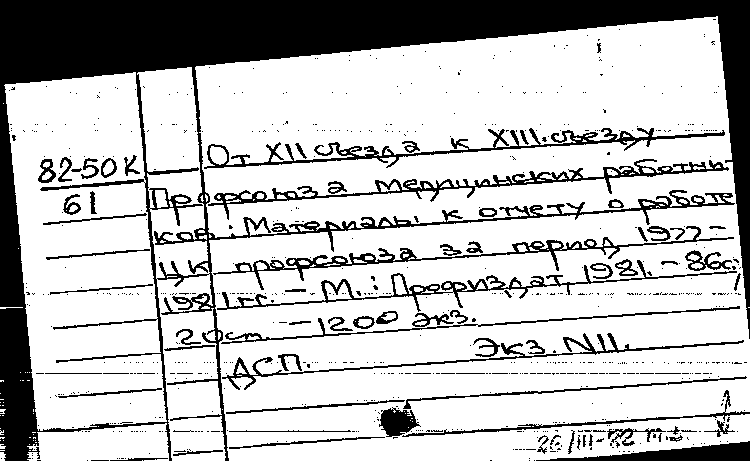 82-50К
61
От XII съезда к XIII.съезду
Профсоюза медицинских работни-
ков: Материалы к отчету о работе
ЦК профсоюза за период 1977-
1981гг. - М.: Профиздат, 1981. - 86с;
20см. - 1200 экз.
ДСП. Экз. N11.
26/III-82